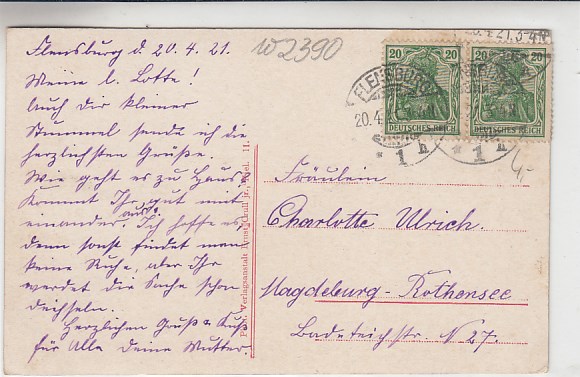 Flensburg d. 20.4.21.
W2390
Meine l. Lotte!
Auch dir kleiner
Stummel sende ich die
herzlichsten Grüße.
Wie geht es zu Haus?
Kommt Ihr gut mit
einander aus? Ich hoffe es,
denn sonst findet man
keine Ruhe, aber Ihr
werdet die Sache schon
deichseln.
Herzlichen Gruß u. Kuß
für Alle Deine Mutter.
Verlagsanstalt
Kiel. II.
20 20
20 20
DEUTSCHES REICH
DEUTSCHES REICH
FLENSBURG
20.4.
* 1 h
* 1 h
Fräulein
Charlotte Ulrich.
Magdeburg-Rothensee
Badeteichstr. N 27.